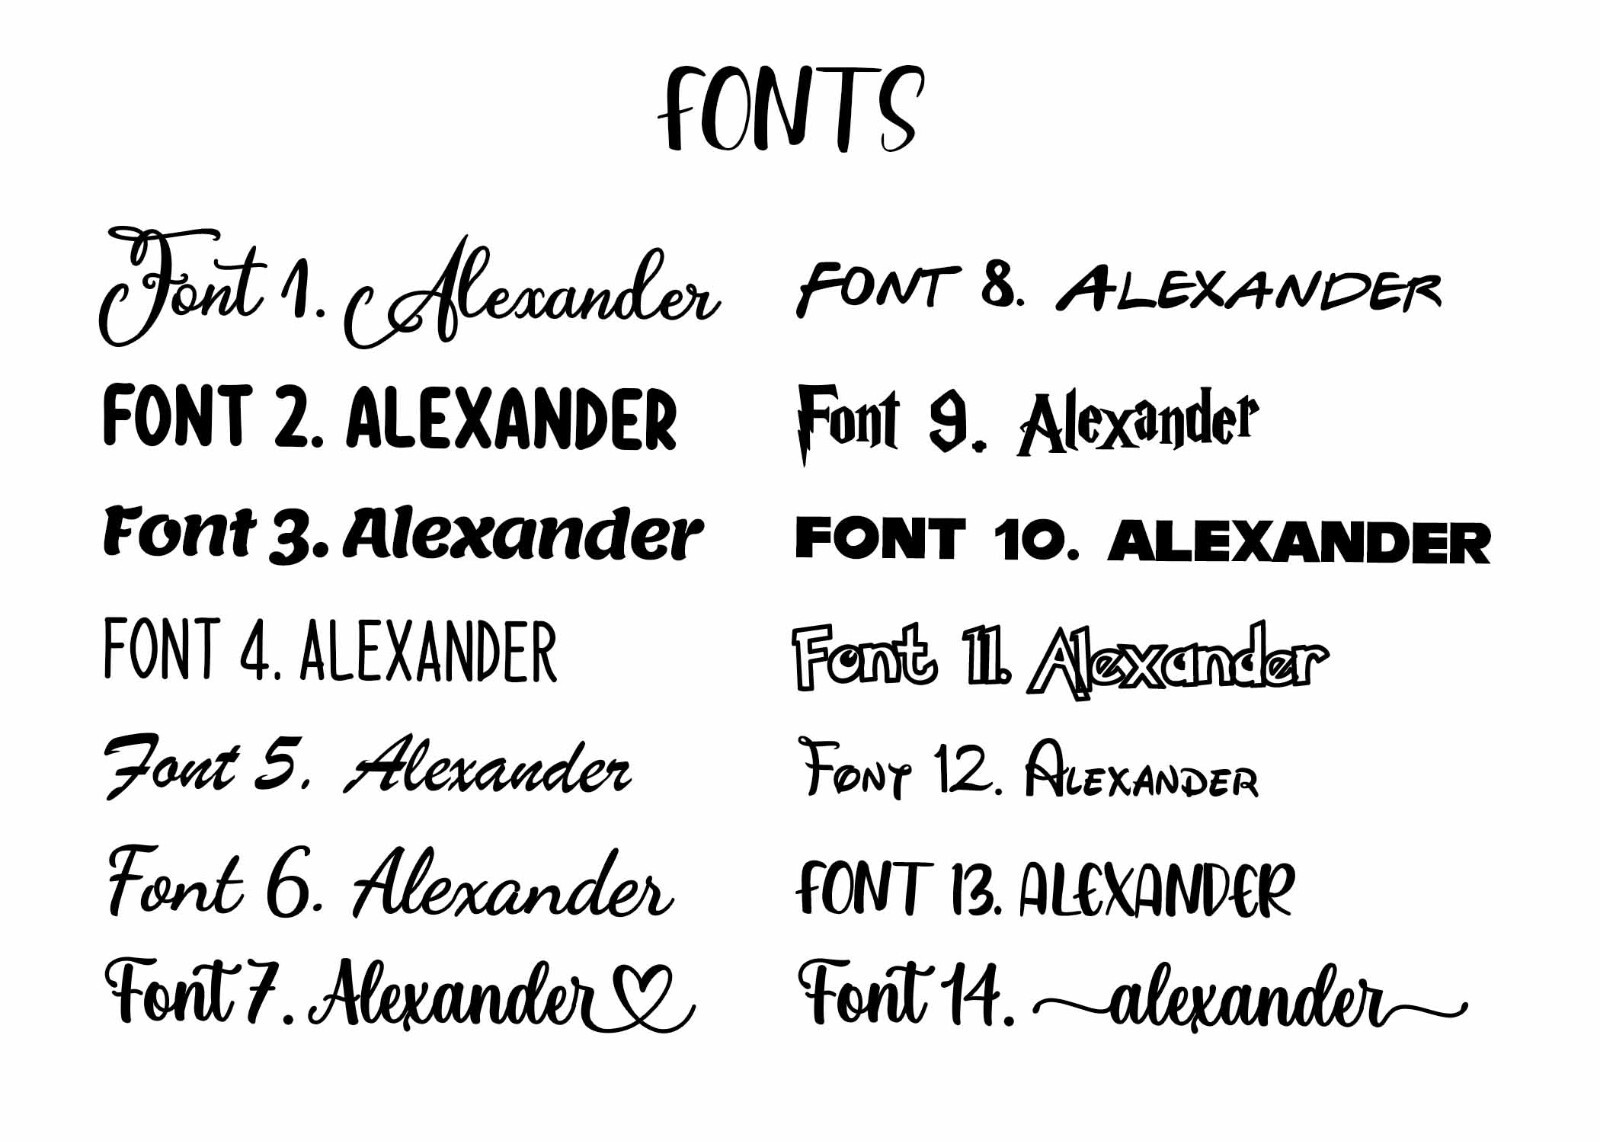 FONTS
Font 1. Alexander
FONT 2. ALEXANDER
Font 3. Alexander
FONT 4. ALEXANDER
Font 5. Alexander
Font 6. Alexander
Font 7. Alexander
FONT 8. ALEXANDER
Font 9. Alexander
FONT 10. ALEXANDER
Font 11. Alexander
FONT 12. ALEXANDER
FONT 13. ALEXANDER
Font 14. alexander